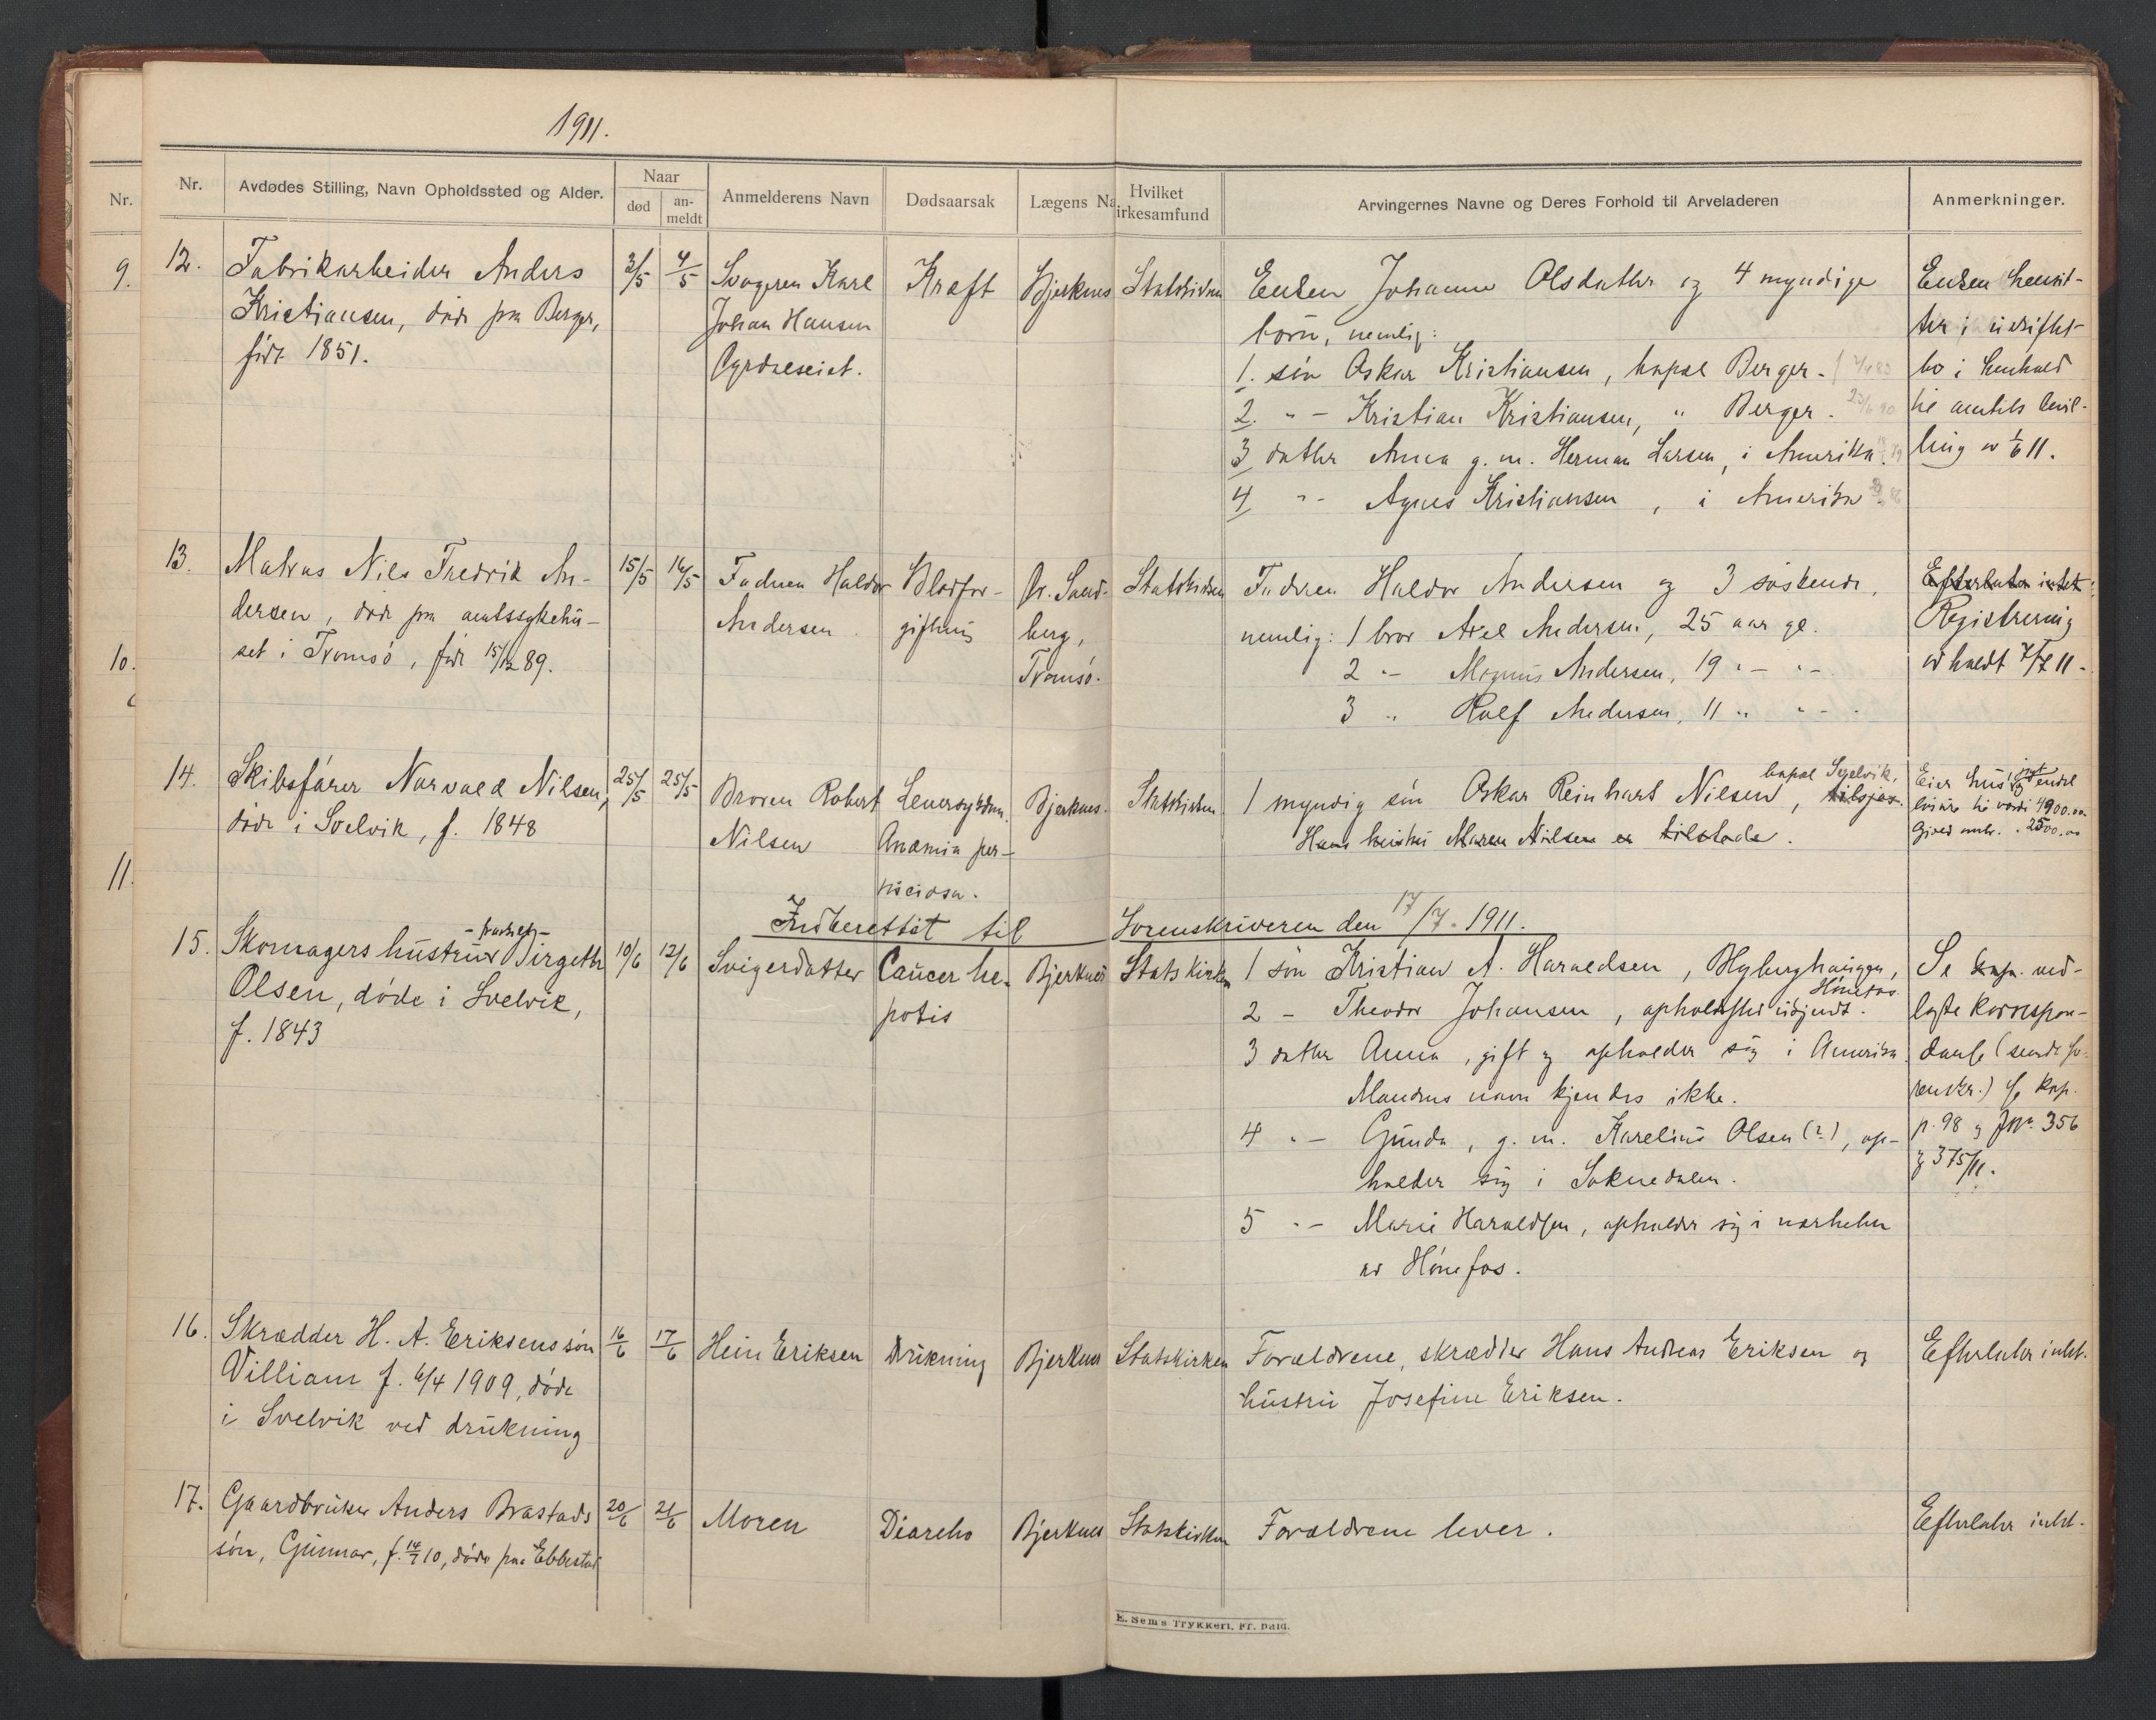 1911.
Nr.
Nr. Avdødes Stilling, Navn Opholdssted og Alder. Naar død an-meldt Anmelderens Navn Dødsaarsak Lægens Na Hvilket irkesamfund Arvingernes Navne og Deres Forhold til Arveladeren Anmerkninger.
9.
10.
11.
12. Fabrikarbeider Anders
Kristiansen, døde paa Berger,
født 1851.
3/5 4/5
Svogeren Karl
Johan Hansen
Kræft
Bjerknes
Statskirken
Enken Johanne Olsdatter og 4 myndige
børn, nemlig:
1. søn Oskar Kristiansen, bopæl Berger.
2. " - Kristian Kristiansen, " Berger.
3 datter Anna g. m. Herman Larsen, i Amerika.
4 " - Agnes Kristiansen, i Amerika.
Enken hensit-
ter i uskiftet
bo i henhold
til amtets bevil-
ling av 1/6 11.
13. Matros Nils Fredrik An-
dersen, døde paa amtssykehu-
set i Tromsø, født 15/12 89.
15/5 16/5
Faderen Haldor
Andersen.
Blodfor-
giftning
Dr. Sand-
berg,
Tromsø.
Statskirken
Faderen Haldor Andersen og 3 søskende,
nemlig: 1 bror Axel Andersen, 25 aar gl.
2 " - Magnus Andersen, 19 " - " -
3 " Rolf Andersen, 11 " " - .
Efterlater intet.
Registrering
avholdt 7/7 11.
14. Skibsfører Norvald Nilsen,
døde i Svelvik, f. 1848
25/5 25/5
Broren Robert
Nilsen
Leversygdom.
Anæmia per-
niciosa.
Bjerknes.
Statskirken.
bopæl Svelvik,
1 myndig søn Oskar Reinhart Nilsen, tilsjøs.
Hans hustru Maren Nilsen er tilstede.
Eier hus og endel
løsøre til værdi 4900.00
Gjæld omtr. . 2500.00
Indberettet til Sorenskriveren den 17/7 - 1911.
15. Skomagers hustru - Birgethe
Olsen, døde i Svelvik,
f. 1843
10/6 12/6
Svigerdatter
Cancer he-
patis
Bjerknes
Statskirken
1 søn Kristian A. Haraldsen, Hybughaugen,
Hønefos.
2 - Theodor Johansen, opholdssted ubekjendt.
3 datter Anna, gift og opholder sig i Amerika.
Mandens navn kjendes ikke.
4 " - Gunda, g. m. Karelius Olsen (?), op-
holder sig i Soknedalen.
5 " - Marie Haraldsen, opholder sig i nærheten
av Hønefos.
Se ved-
lagte korrespon-
danse (sendt so-
renskr.) Se kop.
p. 98 og Jnr. 356
og 375/11.
16. Skrædder H. A. Eriksens søn
William f. 6/4 1909, døde
i Svelvik ved drukning
16/6 17/6
Hein Eriksen
Drukning
Bjerknes
Statskirken
Forældrene, skrædder Hans Andreas Eriksen og
hustru Josefine Eriksen.
Efterlater intet.
17. Gaardbruker Anders Brastads
søn, Gunnar, f. 14/7 10, døde paa Ebbestad
20/6 21/6
Moren
Diareho
Bjerknes
Statskirken
Forældrene lever.
Efterlater intet.
E. Sems Trykkeri, Fr. hald.